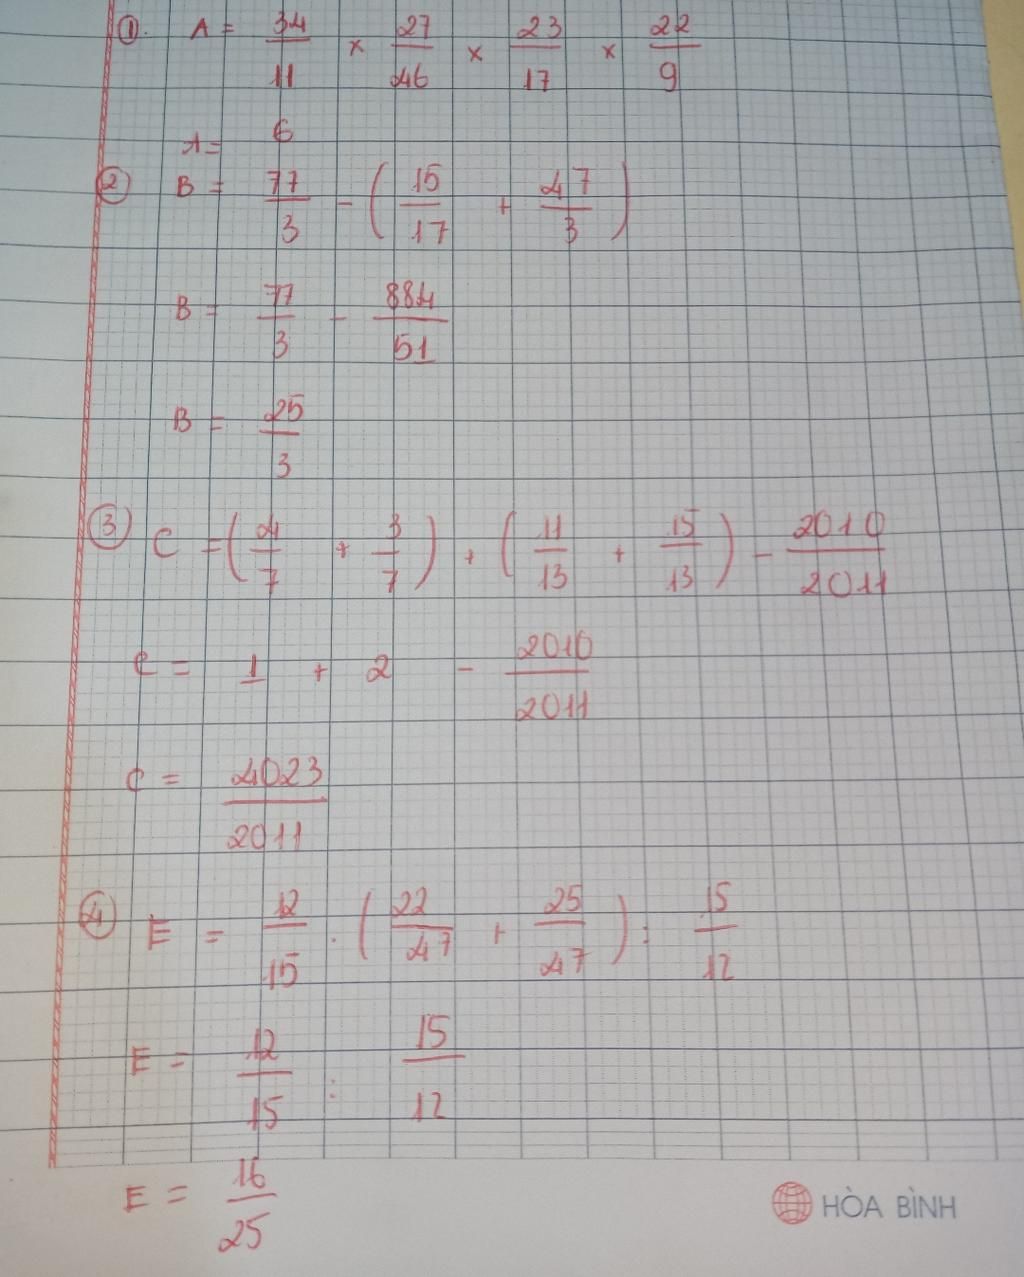 ① A = 34/11 × 27/46 × 23/17 × 22/9
A = 6
② B = 77/3 - (15/17 + 47/3)
B = 77/3 - 884/51
B = 25/3
③ C = (4/7 + 3/7) + (11/13 + 15/13) - 2010/2011
C = 1 + 2 - 2010/2011
C = 4023/2011
④ E = 12/15 . (22/47 + 25/47) : 15/12
E = 12/15 : 15/12
E = 16/25
HÒA BÌNH